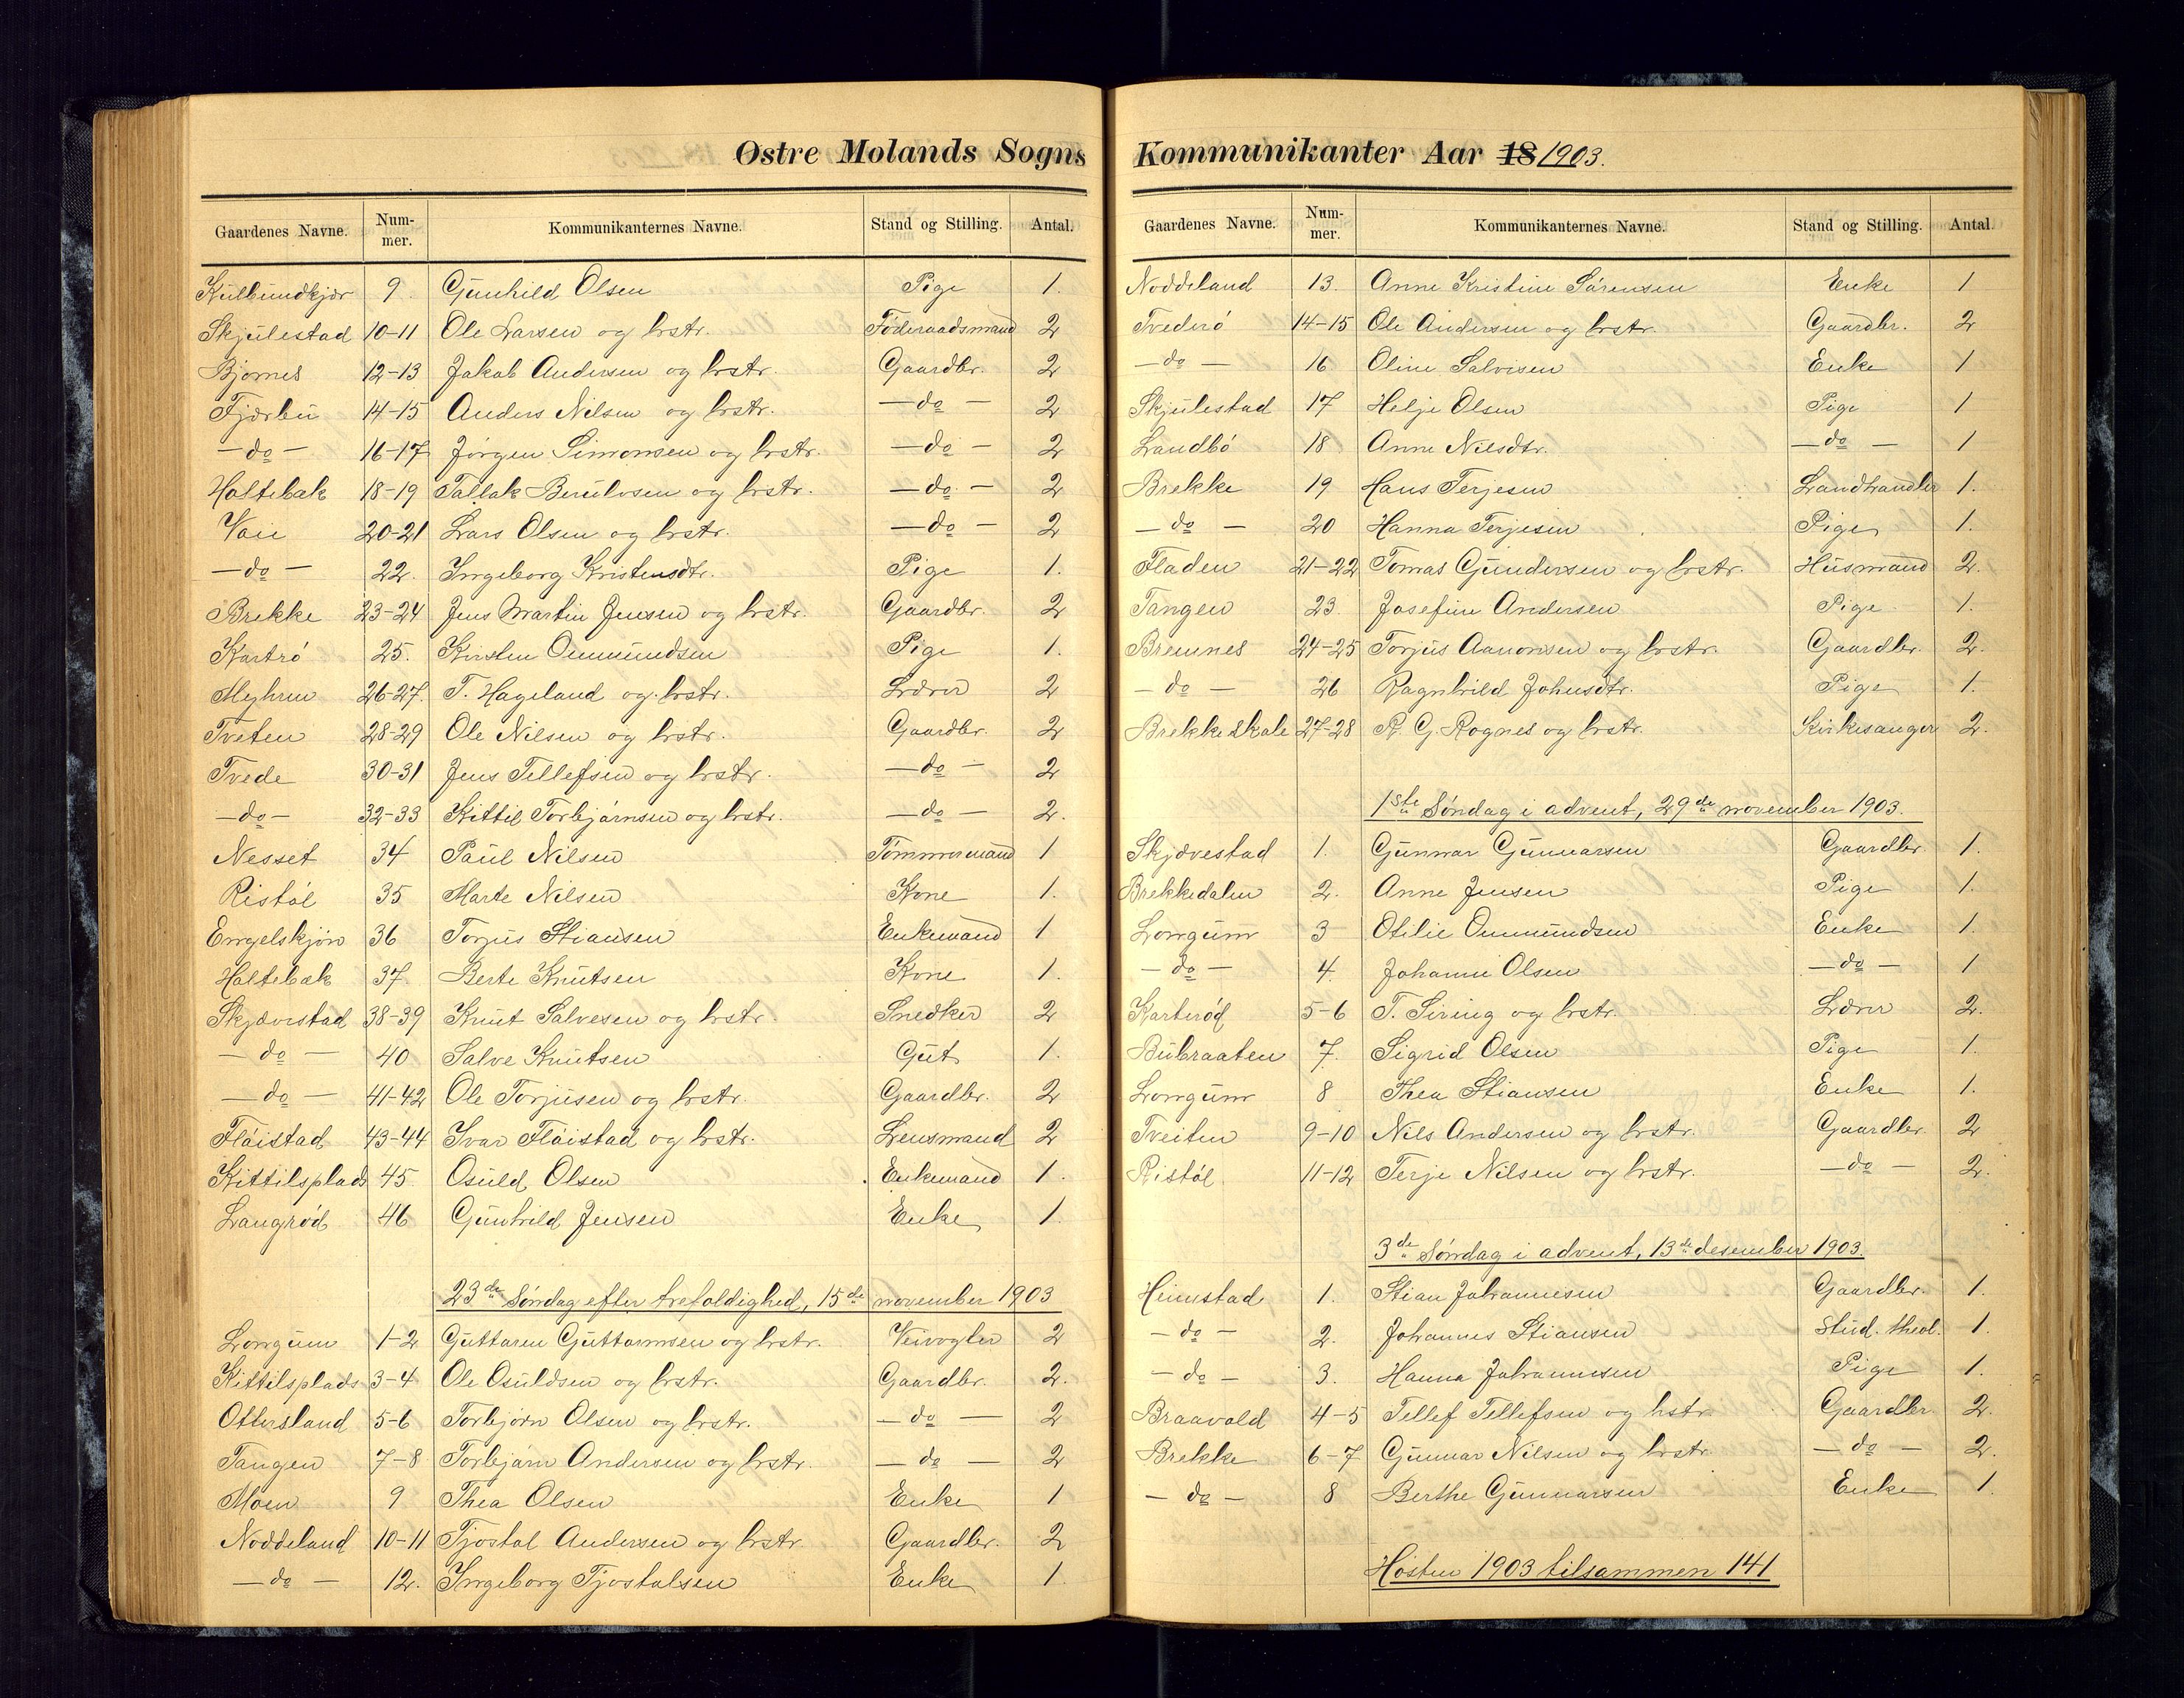 Østre Molands Sogns
Gaardenes Navne. Num-mer. Kommunikanternes Navne. Stand og Stilling. Antal.
Kulbundkjær 9. Gunhild Olsen Pige 1.
Skjulestad 10-11 Ole Larsen og hstr. Føderaadsmand 2
Bjornes 12-13 Jakob Andersen og hstr. Gaardbr. 2
Fjærbu 14-15 Anders Nilsen og hstr. — do — 2
— do — 16-17 Jørgen Simonsen og hstr. — do — 2
Holtebak 18-19 Tallak Berulvsen og hstr. — do — 2
Vaie 20-21 Lars Olsen og hstr. — do — 2
— do — 22. Ingeborg Kristensdtr. Pige 1.
Brekke 23-24 Jens Martin Jensen og hstr. Gaardbr. 2
Kartrø 25. Kirsten Ommundsen Pige 1.
Myhren 26-27. T. Hageland og hstr. Lærer 2
Tveten 28-29 Ole Nilsen og hstr. Gaardbr. 2
Tvede 30-31 Jens Tellefsen og hstr. — do — 2
— do — 32-33 Kittil Torbjørnsen og hstr. — do — 2.
Nesset 34 Paul Nilsen Tømmermand 1
Ristøl 35 Marte Nilsen Kone 1.
Engelskjøn 36 Torjus Stiansen Enkemand 1
Holtebak 37. Berte Knutsen Kone 1.
Skjævestad 38-39 Knut Salvesen og hstr. Snedker 2
— do — 40 Salve Knutsen Gut 1.
— do — 41-42 Ole Torjusen og hstr. Gaardbr. 2
Fløistad 43-44 Ivar Fløistad og hstr. Lensmand 2
Kittilsplads 45 Osuld Olsen Enkemand 1.
Langrød 46 Gunhild Jensen Enke 1.
23de Søndag efter trefoldighed, 15de november 1903
Longum 1-2 Guttorm Guttormsen og hstr. Veivogter 2
Kittilsplads 3-4 Ole Osuldsen og hstr. Gaardbr. 2.
Ottersland 5-6 Torbjørn Olsen og hstr. — do — 2
Tangen 7-8 Torbjørn Andersen og hstr. — do — 2
Moen 9 Thea Olsen Enke 1
Noddeland 10-11 Tjostol Andersen og hstr. Gaardbr. 2
— do — 12. Ingeborg Tjostolsen Enke 1.
Kommunikanter Aar 18 1903.
Gaardenes Navne. Num-mer. Kommunikanternes Navne. Stand og Stilling. Antal.
Noddeland 13. Anne Kristine Sørensen Enke 1
Tvederø 14-15 Ole Andersen og hstr. Gaardbr. 2
— do — 16 Oline Salvisen Enke 1
Skjulestad 17 Helje Olsen Pige 1
Landbø 18 Anne Nilsdtr. — do — 1
Brekke 19 Hans Terjesen Landhandler 1.
— do — 20 Hanna Terjesen Pige 1.
Fladen 21-22 Tomas Gundersen og hstr. Husmand 2.
Tangen 23. Josefine Andersen Pige 1.
Bremnes 24-25 Torjus Aanonsen og hstr. Gaardbr. 2.
— do — 26 Ragnhild Johnsdtr. Pige 1.
Brekke skole 27-28 R. G. Rognes og hstr. Kirkesanger 2.
1ste Søndag i advent, 29de november 1903.
Skjævestad 1. Gunnar Gunnarsen Gaardbr. 1.
Brekkedalen 2. Anne Jensen Pige 1.
Longum 3 Otilie Ommundsen Enke 1.
— do — 4. Johanne Olsen — do — 1
Karterød 5-6 T. Siring og hstr. Lærer 2.
Bubraaten 7. Sigrid Olsen Pige 1.
Longum 8 Thea Stiansen Enke 1.
Tveiten 9-10 Nils Andersen og hstr. Gaardbr. 2
Ristøl 11-12 Terje Nilsen og hstr. — do — 2.
3de Søndag i advent, 13de desember 1903.
Himestad 1. Stian Johannesen Gaardbr. 1.
— do — 2. Johannes Stiansen Stud. theol. 1.
— do — 3. Hanna Johannesen Pige 1.
Braavold 4-5 Tellef Tellefsen og hstr. Gaardbr. 2.
Brekke 6-7 Gunnar Nilsen og hstr. — do — 2.
— do — 8 Berthe Gunnarsen Enke 1.
Høsten 1903 tilsammen 141